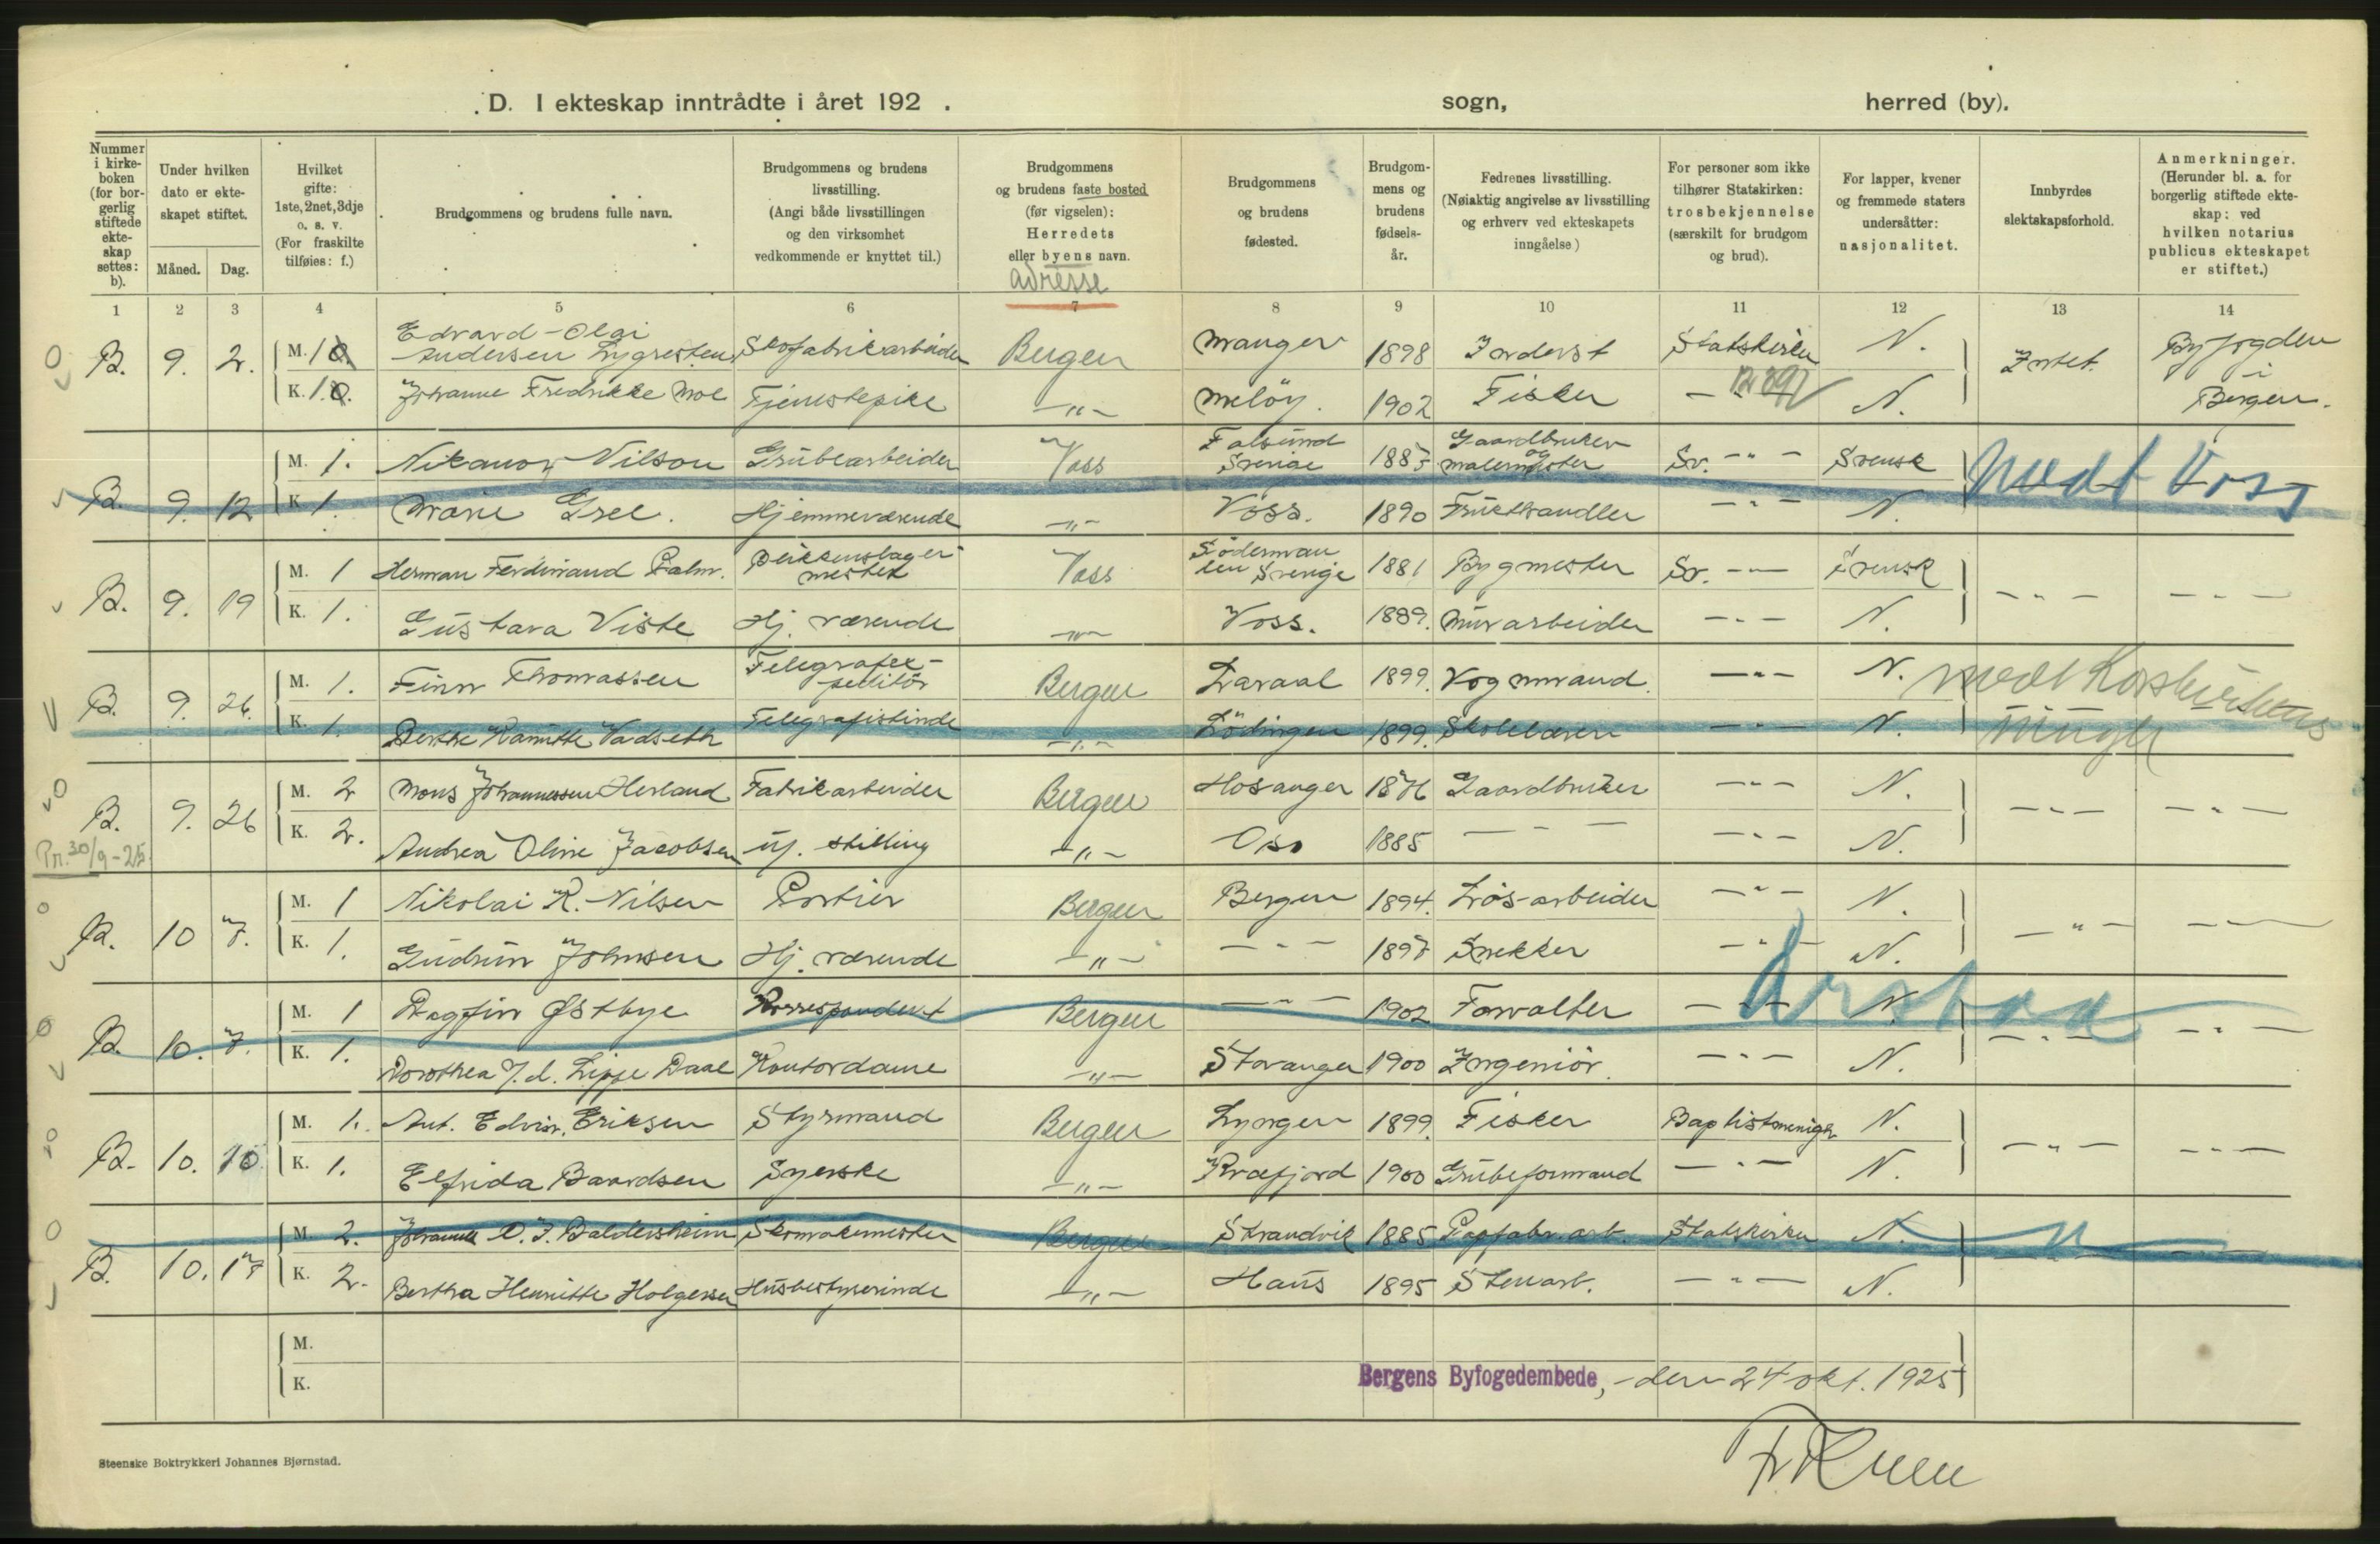 D. I ekteskap inntrådte i året 192 . sogn, herred (by).
Nummer i kirkeboken (for borgerlig stiftede ekteskap settes: b).
Under hvilken dato er ekteskapet stiftet.
Måned. Dag.
Hvilket gifte: 1ste, 2net, 3dje o. s. v. (For fraskilte tilføies: f.)
Brudgommens og brudens fulle navn.
Brudgommens og brudens livsstilling. (Angi både livsstillingen og den virksomhet vedkommende er knyttet til.)
Brudgommens og brudens faste bosted (før vigselen): Herredets eller byens navn.
adresse
Brudgommens og brudens fødested.
Brudgommens og brudens fødselsår.
Fedrenes livsstilling. (Nøiaktig angivelse av livsstilling og erhverv ved ekteskapets inngåelse)
For personer som ikke tilhører Statskirken: trosbekjennelse (særskilt for brudgom og brud).
For lapper, kvener og fremmede staters undersåtter: nasjonalitet.
Innbyrdes slektskapsforhold.
Anmerkninger. (Herunder bl. a. for borgerlig stiftede ekteskap: ved hvilken notarius publicus ekteskapet er stiftet.)
1 2 3 4 5 6 7 8 9 10 11 12 13 14
B. 9. 2. M. 1 Edvard Olai Andersen Skofabrikarbeider Bergen Manger 1898 Statskirken N. Intet. Byfogden i Bergen.
K. 1. Johanne Fredrikke Moe Tjenestepike -"- Meløy. 1902 Fisker - " - N.
B. 9. 12 M. 1. Nikanor Nilson Grubearbeider Voss Sverige 1887 Gaardbruker og malermester Sv. - " - Svensk Medt Voss
K. 1. Marie Gree. Hjemmeværende -"- Voss. 1890 Frukthandler - " - N.
B. 9. 19 M. 1 Herman Ferdinand Palm. Voss Söderman len Sverige 1881 Bygmester Sv. - " - Svensk - " - - " -
K. 1. Gustava Viste Hj. værende -"- Voss. 1889. Murarbeider - " - N.
B. 9. 26. M. 1. Finn Thomassen Telegrafexpeditör Bergen 1899. Vognmand. - " - N. Medt
K. 1. Berthe Vadseth Telegrafistinde -"- Lödingen 1899. Skolelærer - " - N.
B. 9. 26 M. 2 Mons Johannessen Herland Fabrikarbeider Bergen Hosanger 1876 Gaardbruker - " - N. - " - - " -
Pn. 30/9-25.
K. 2. Andrea Oline Jacobsen u/. stilling -"- Oslo 1885 - - - - " - N.
B. 10 7. M. 1 Nikolai R. Nilsen Portier Bergen Bergen 1894. Løs-arbeider - " - N. - " - - " -
K. 1. Gudrun Johnsen Hj. værende -"- - " - 1897 Snekker - " - N.
B. 10. 7. M. 1 Dagfin Østbye Korrespondent Bergen - " - 1902 Forvalter - " - N. - " - - " -
Årstad
K. 1. Dorothea v. d. Lippe Daae Kontordame -"- Stavanger 1900 Ingeniör. - " - N.
B. 10. 10. M. 1. Ant. Edvin. Eriksen Styrmand Bergen Lyngen 1899. Fisker Baptistmenigh. N. - " - - " -
K. 1. Elfrida Baardsen Syerske -"- Kvæfjord 1900 Grubeformand - " - N.
B. 10. 17 M. 2. Johannes O. J. Baldersheim Skomakermester Bergen Strandvik 1885 Papfabr. arb. Statskirken N. - " - - " -
K. 2. Bertha Henritte Holgersen Husbestyrerinde -"- Haus 1895 Stenarb. - " - N.
M.
K.
Bergens Byfogedembede, den 24 okt. 1925
Steenske Boktrykkeri Johannes Bjørnstad.